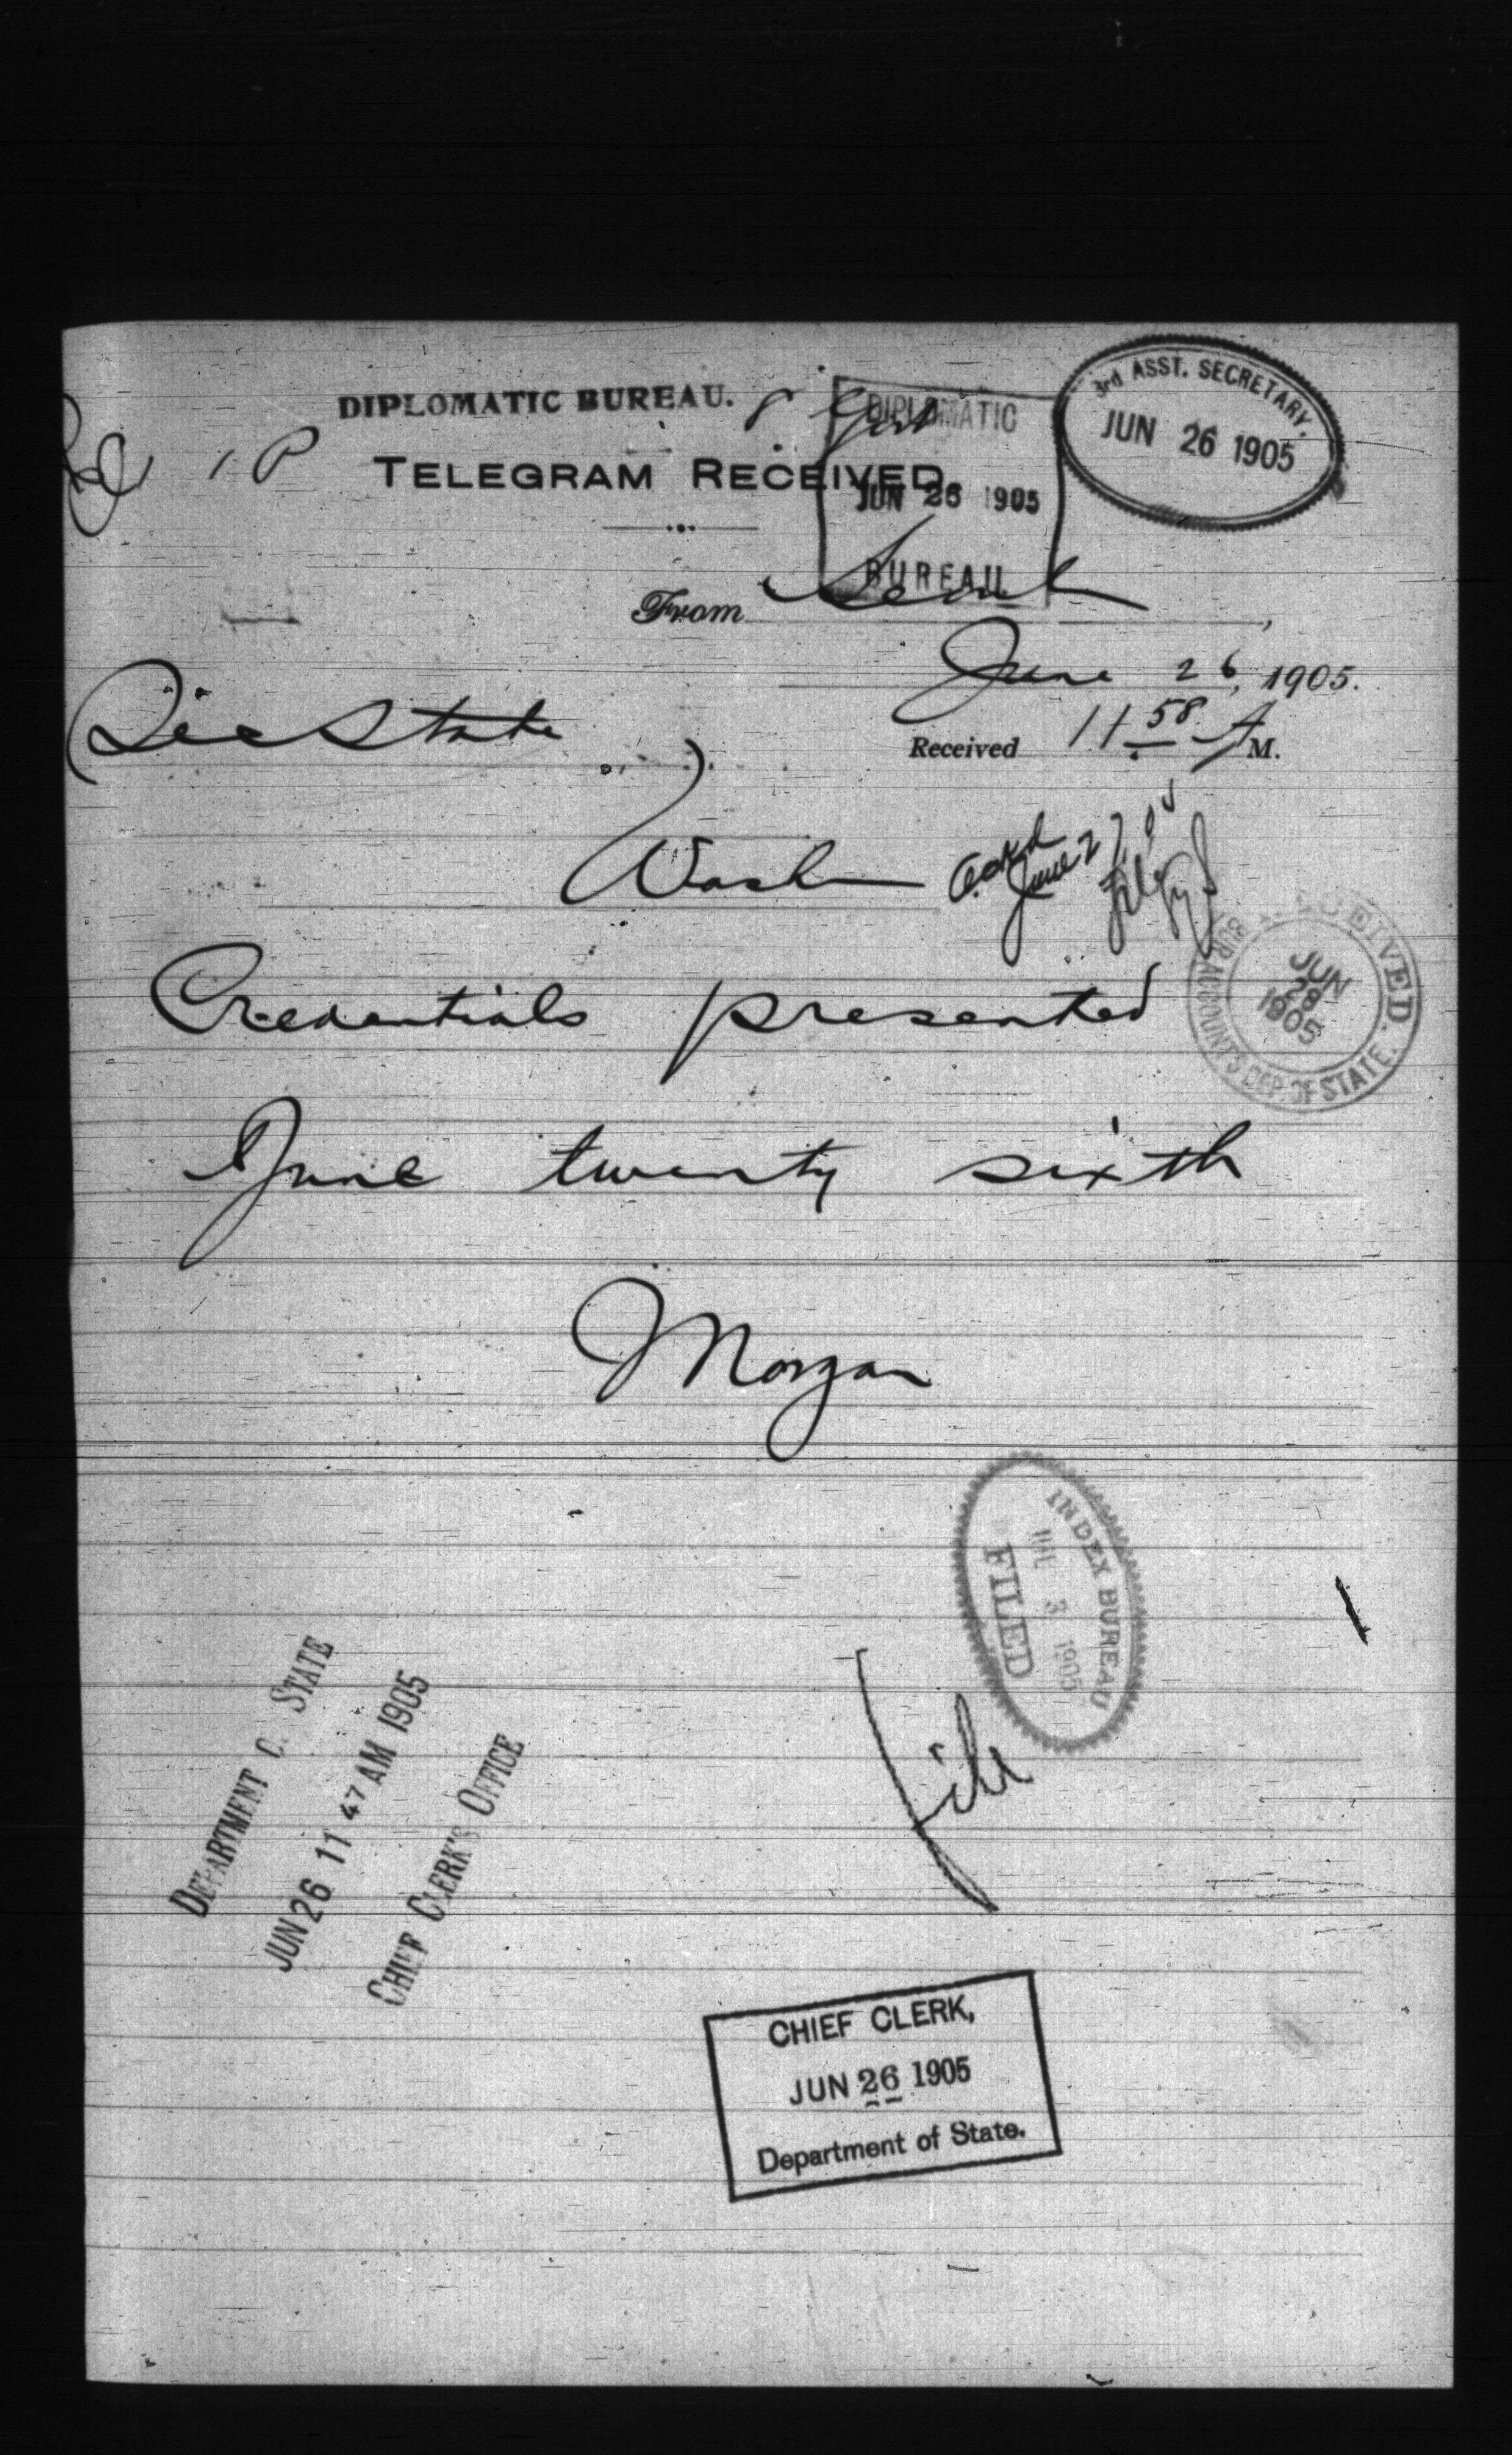 DIPLOMATIC BUREAU.
3rd ASST. SECRETARY.
JUN 26 1905
DIPLOMATIC
JUN 26 1905
BUREAU
TELEGRAM RECEIVED.
From Seoul,
June 26, 1905.
Received 11 58 A M.
Sec State
Wash
Ackd
June 27, 05
RECEIVED.
JUN
28
1905
BUR ACCOUNTS DEP. OF STATE.
Credentials presented
June twenty sixth
Morgan
INDEX BUREAU
JUL 3 1905
FILED
File
DEPARTMENT O. STATE
JUN 26 11 47 AM 1905
CHIEF CLERK'S OFFICE
CHIEF CLERK,
JUN 26 1905
Department of State.